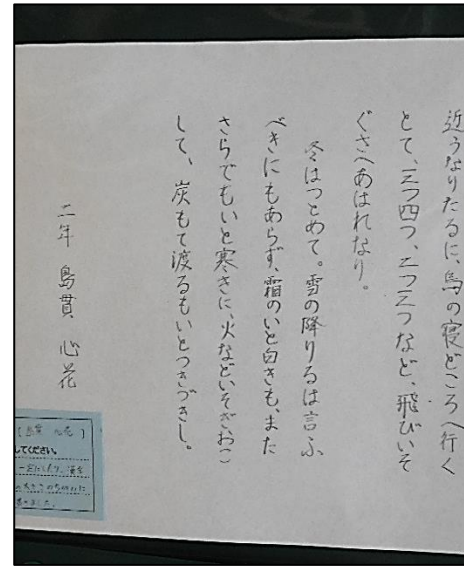 近うなりたるに、烏の寝どころへ行く
とて、三つ四つ、二つ三つなど、飛びいそ
ぐさへあはれなり。
冬はつとめて。雪の降りるは言ふ
べきにもあらず、霜のいと白きも、また
さらでもいと寒さに、火などいそぎおこ
して、炭もて渡るもいとつきづきし。
二年 島貫 心花
してください。